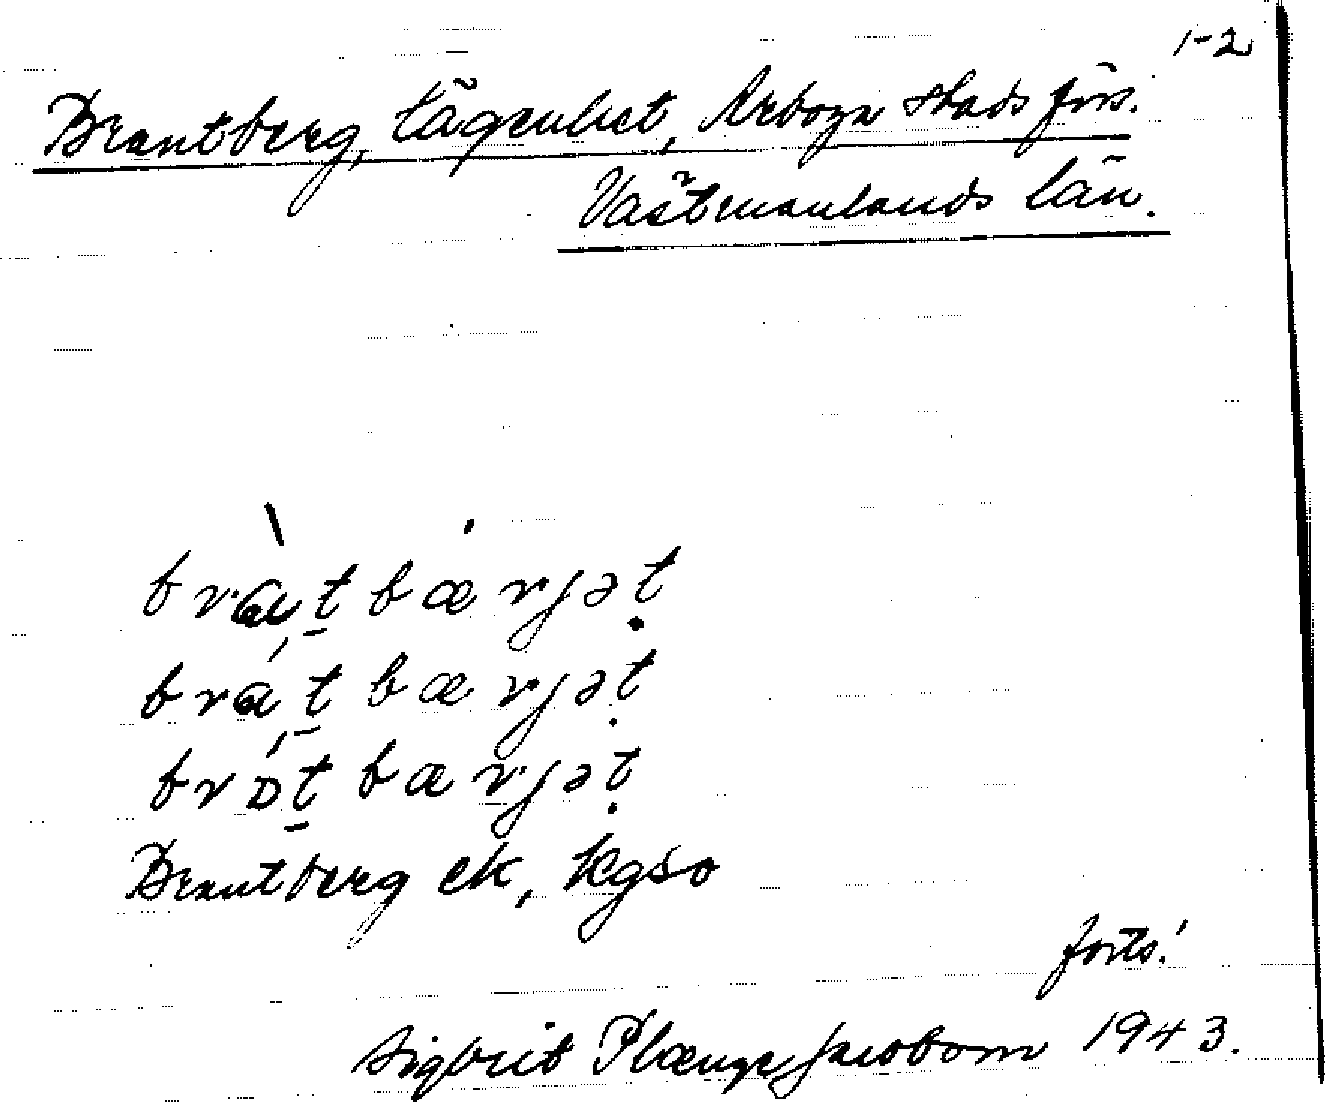 1-2
Brantberg, lägenhet, Arboga stads förs.
Västmanlands län.
bràṯ bærjəṭ
bráṯ bærjəṭ
brɒ́ṯ bærjəṭ
Brantberg ek, kgso
forts!
Sigbrit Plænge Jacobson 1943.